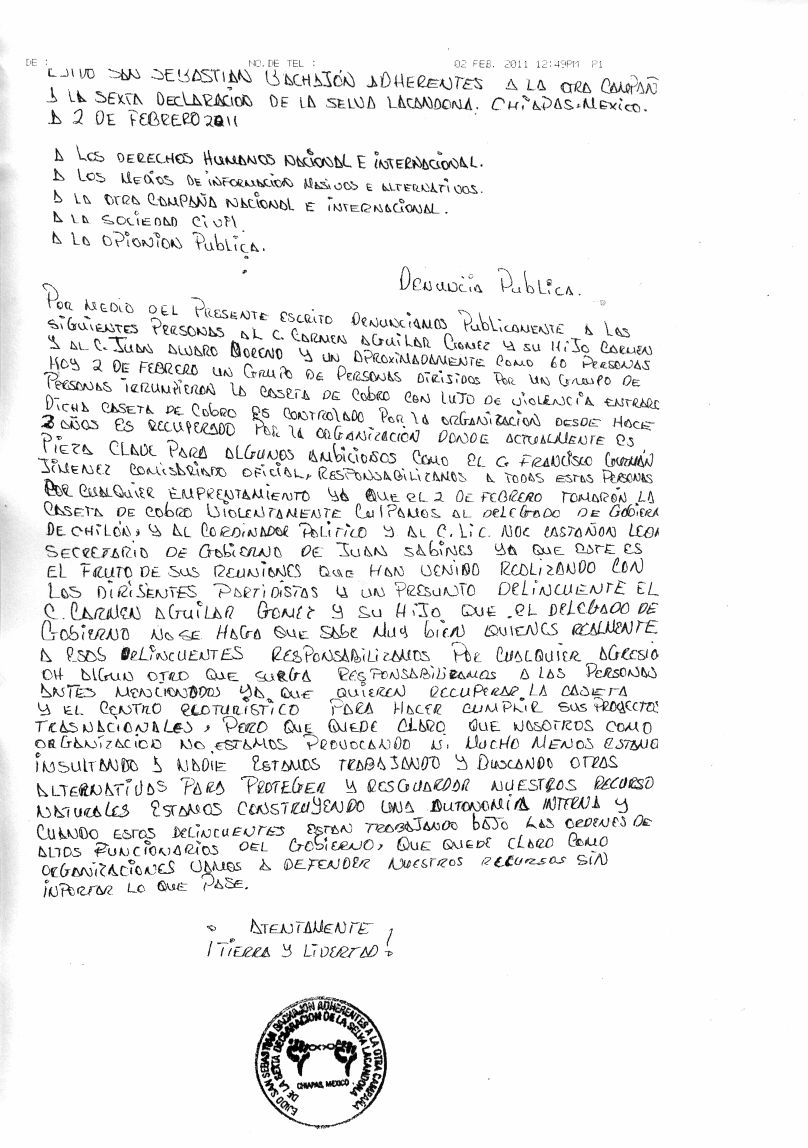 DE : NO.DE TEL : 02 FEB. 2011 12:49PM P1
EJIDO SAN SEBASTIAN BACHAJÓN ADHERENTES A LA OTRA CAMPAÑ
A LA SEXTA DECLARACION DE LA SELVA LACANDONA. CHIAPAS-MEXICO.
A 2 DE FEBRERO 2011
A LOS DERECHOS HUMANOS NACIONAL E INTERNACIONAL.
A LOS MEDIOS DE INFORMACION MASIVOS E ALTERNATIVOS.
A LA OTRA CAMPAÑA NACIONAL E INTERNACIONAL.
A LA SOCIEDAD CIVIL
A LA OPIONION PUBLICA.
DENUNCIA PUBLICA.
POR MEDIO DEL PRESENTE ESCRITO DENUNCIAMOS PUBLICAMENTE A LAS
SIGUIENTES PERSONAS AL C. CARMEN AGUILAR GOMEZ Y SU HIJO CARMEN
Y AL C. JUAN ALVARO MORENO Y UN APROXIMADAMENTE COMO 60 PERSONAS
HOY 2 DE FEBRERO UN GRUPO DE PERSONAS DIRISIDOS POR UN GRUPO DE
PERSONAS IRRUMPIERON LA CASETA DE COBRO CON LUJO DE VIOLENCIA ENTRARO
DICHA CASETA DE COBRO ES CONTROLADO POR LA ORGANIZACION DESDE HACE
2 AÑOS ES RECUPERADO POR LA ORGANIZACION DONDE ACTUALMENTE ES
PIEZA CLAVE PARA ALGUNOS AMBICIOSOS COMO EL C. FRANCISCO GUZMÁN
JIMENEZ COMISARIADO OFICIAL, RESPONSABILIZAMOS A TODAS ESTAS PERSONAS
POR CUALQUIER EMPRENTAMIENTO YA QUE EL 2 DE FEBRERO TOMARON LA
CASETA DE COBRO VIOLENTAMENTE CULPAMOS AL DELEGADO DE GOBIER
DE CHILÓN, Y AL CORDINADOR POLITICO Y AL C. LIC. NOE CASTAÑON LEON
SECRETARIO DE GOBIERNO DE JUAN SABINES YA QUE ESTE ES
EL FRUTO DE SUS REUNIONES QUE HAN VENIDO REALIZANDO CON
LOS DIRISENTES PARTIDISTAS Y UN PRESUNTO DELINCUENTE EL
C. CARMEN AGUILAR GOMEZ Y SU HIJO, QUE EL DELEGADO DE
GOBIERNO NO SE HAGA QUE SABE MUY BIEN QUIENES REALMENTE
A ESOS DELINCUENTES RESPONSABILIZAMOS POR CUALQUIER AGRESIO
OH ALGUN OTRO QUE SURGA RESPONSABILIZAMOS A LAS PERSONAS
ANTES MENCIONADOS YA QUE QUIEREN RECUPERAR LA CASETA
Y EL CENTRO ECOTURISTICO PARA HACER CUMPLIR SUS PROYECTOS
TRASNACIONALES, PERO QUE QUEDE CLARO QUE NOSOTROS COMO
ORGANIZACION NO ESTAMOS PROVOCANDO NI MUCHO MENOS ESTAMO
INSULTANDO A NADIE ESTAMOS TRABAJANDO Y BUSCANDO OTRAS
ALTERNATIVAS PARA PROTEGER Y RESGUARDAR NUESTROS RECURSO
NATURALES ESTAMOS CONSTRUYENDO UNA AUTONOMIA INTERNA Y
CUANDO ESTOS DELINCUENTES ESTAN TRABAJANDO BAJO LAS ORDENES DE
ALTOS FUNCIONARIOS DEL GOBIERNO, QUE QUEDE CLARO COMO
ORGANIZACIONES VAMOS A DEFENDER NUESTROS RECURSOS SIN
INPORTAR LO QUE PASE.
ATENTAMENTE
¡TIERRA Y LIBERTAD!
EJIDO SAN SEBASTIAN BACHAJON ADHERENTES A LA OTRA CAMPAÑA
DE LA SEXTA DECLARACION DE LA SELVA LACANDONA
CHIAPAS, MEXICO